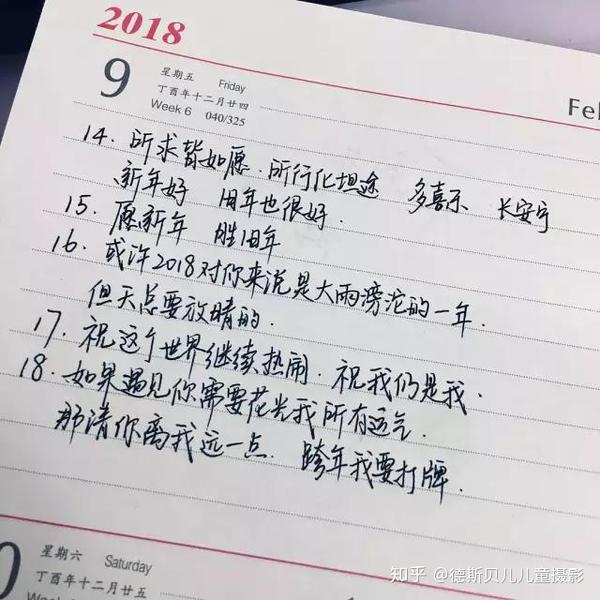 2018
9 星期五 Friday
丁酉年十二月廿四
Week 6 040/325
Fe
14. 所求皆如愿.所行化坦途 多喜乐 长安宁
新年好 旧年也很好.
15. 愿新年 胜旧年
16. 或许2018对你来说是大雨滂沱的一年.
但天总要放晴的.
17. 祝这个世界继续热闹.祝我仍是我.
18. 如果遇见你需要花光我所有运气.
那请你离我远一点. 跨年我要打牌.
星期六 Saturday
丁酉年十二月廿五
知乎 @德斯贝儿儿童摄影